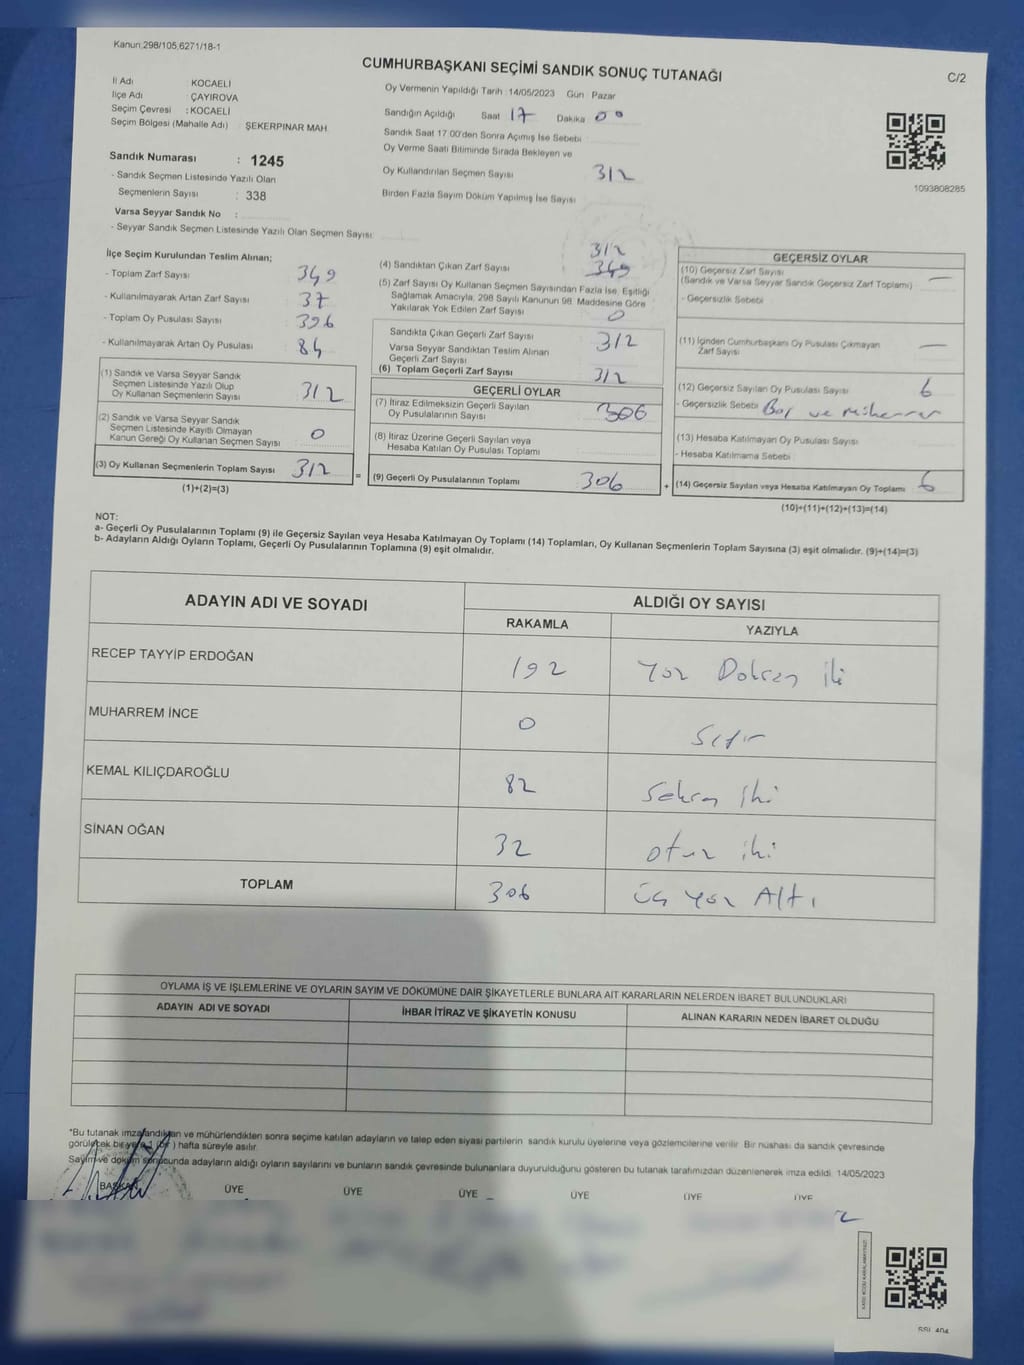 Kanun,298/105,6271/18-1
CUMHURBAŞKANI SEÇİMİ SANDIK SONUÇ TUTANAĞI
C/2
İl Adı : KOCAELİ
İlçe Adı : ÇAYIROVA
Seçim Çevresi : KOCAELİ
Seçim Bölgesi (Mahalle Adı) : ŞEKERPINAR MAH.
Sandık Numarası : 1245
- Sandık Seçmen Listesinde Yazılı Olan
Seçmenlerin Sayısı : 338
Varsa Seyyar Sandık No :
- Seyyar Sandık Seçmen Listesinde Yazılı Olan Seçmen Sayısı:
Oy Vermenin Yapıldığı Tarih : 14/05/2023 Gün : Pazar
Sandığın Açıldığı Saat 17 Dakika 00
Sandık Saat 17.00'den Sonra Açılmış İse Sebebi :
Oy Verme Saati Bitiminde Sırada Bekleyen ve
Oy Kullandırılan Seçmen Sayısı 312
Birden Fazla Sayım Döküm Yapılmış İse Sayısı
1093808285
İlçe Seçim Kurulundan Teslim Alınan;
- Toplam Zarf Sayısı 349
- Kullanılmayarak Artan Zarf Sayısı 37
- Toplam Oy Pusulası Sayısı 396
- Kullanılmayarak Artan Oy Pusulası 84
(1) Sandık ve Varsa Seyyar Sandık
Seçmen Listesinde Yazılı Olup
Oy Kullanan Seçmenlerin Sayısı 312
(2) Sandık ve Varsa Seyyar Sandık
Seçmen Listesinde Kayıtlı Olmayan
Kanun Gereği Oy Kullanan Seçmen Sayısı 0
(3) Oy Kullanan Seçmenlerin Toplam Sayısı 312 =
(1)+(2)=(3)
312
(4) Sandıktan Çıkan Zarf Sayısı 349
(5) Zarf Sayısı Oy Kullanan Seçmen Sayısından Fazla İse, Eşitliği
Sağlamak Amacıyla, 298 Sayılı Kanunun 98. Maddesine Göre
Yakılarak Yok Edilen Zarf Sayısı 0
Sandıkta Çıkan Geçerli Zarf Sayısı 312
Varsa Seyyar Sandıktan Teslim Alınan
Geçerli Zarf Sayısı
(6) Toplam Geçerli Zarf Sayısı 312
GEÇERLİ OYLAR
(7) İtiraz Edilmeksizin Geçerli Sayılan
Oy Pusulalarının Sayısı 306
(8) İtiraz Üzerine Geçerli Sayılan veya
Hesaba Katılan Oy Pusulası Toplamı
(9) Geçerli Oy Pusulalarının Toplamı 306 +
GEÇERSİZ OYLAR
(10) Geçersiz Zarf Sayısı —
(Sandık ve Varsa Seyyar Sandık Geçersiz Zarf Toplamı)
- Geçersizlik Sebebi
(11) İçinden Cumhurbaşkanı Oy Pusulası Çıkmayan
Zarf Sayısı —
(12) Geçersiz Sayılan Oy Pusulası Sayısı 6
- Geçersizlik Sebebi Boş ve
(13) Hesaba Katılmayan Oy Pusulası Sayısı
- Hesaba Katılmama Sebebi :
(14) Geçersiz Sayılan veya Hesaba Katılmayan Oy Toplamı 6
(10)+(11)+(12)+(13)=(14)
NOT:
a- Geçerli Oy Pusulalarının Toplamı (9) ile Geçersiz Sayılan veya Hesaba Katılmayan Oy Toplamı (14) Toplamları, Oy Kullanan Seçmenlerin Toplam Sayısına (3) eşit olmalıdır. (9)+(14)=(3)
b- Adayların Aldığı Oyların Toplamı, Geçerli Oy Pusulalarının Toplamına (9) eşit olmalıdır.
ADAYIN ADI VE SOYADI
ALDIĞI OY SAYISI
RAKAMLA YAZIYLA
RECEP TAYYİP ERDOĞAN 192 Yüz Doksan iki
MUHARREM İNCE 0 Sıfır
KEMAL KILIÇDAROĞLU 82 Seksen İki
SİNAN OĞAN 32 otuz iki
TOPLAM 306 üç yüz Altı
OYLAMA İŞ VE İŞLEMLERİNE VE OYLARIN SAYIM VE DÖKÜMÜNE DAİR ŞİKAYETLERLE BUNLARA AİT KARARLARIN NELERDEN İBARET BULUNDUKLARI
ADAYIN ADI VE SOYADI İHBAR İTİRAZ VE ŞİKAYETİN KONUSU ALINAN KARARIN NEDEN İBARET OLDUĞU
*Bu tutanak imzalandıktan ve mühürlendikten sonra seçime katılan adayların ve talep eden siyasi partilerin sandık kurulu üyelerine veya gözlemcilerine verilir. Bir nüshası da sandık çevresinde
görülecek bir yere 1 (bir) hafta süreyle asılır.
Sayım ve döküm sonucunda adayların aldığı oyların sayılarını ve bunların sandık çevresinde bulunanlara duyurulduğunu gösteren bu tutanak tarafımızdan düzenlenerek imza edildi. 14/05/2023
BAŞKAN ÜYE ÜYE ÜYE ÜYE ÜYE ÜYE